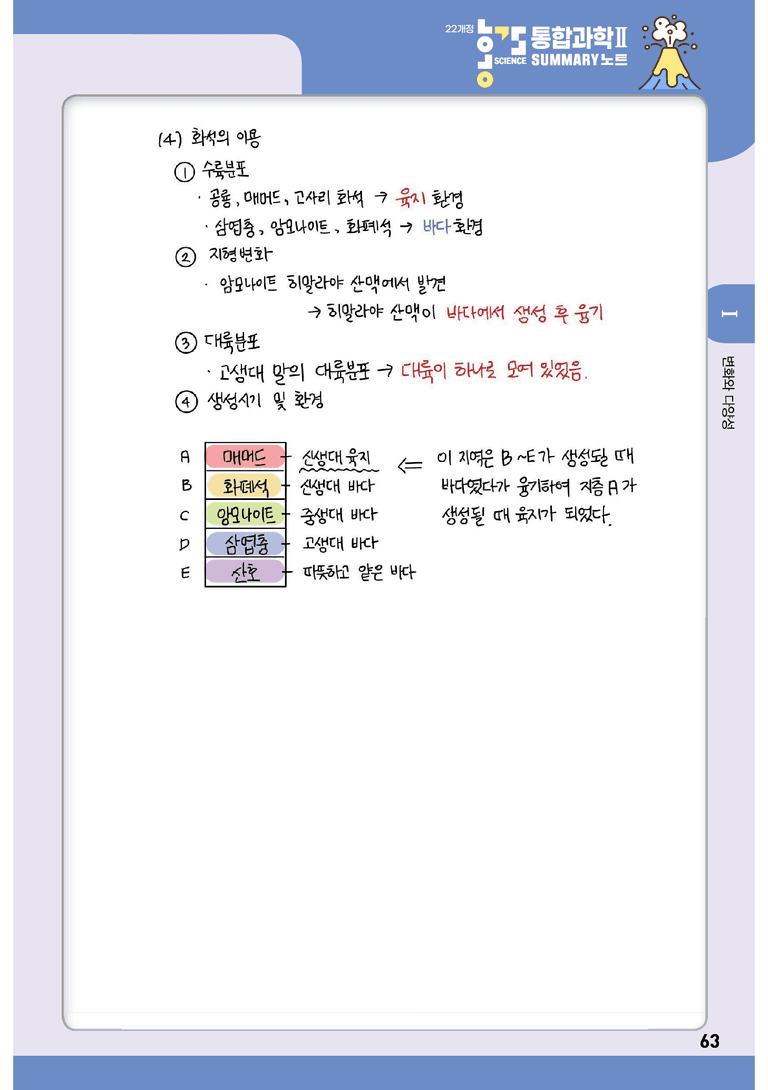 22개정
통합과학Ⅱ
SCIENCE SUMMARY노트
(4) 화석의 이용
① 수륙분포
· 공룡, 매머드, 고사리 화석 → 육지 환경
· 삼엽충, 암모나이트, 화폐석 → 바다 환경
② 지형변화
· 암모나이트 히말라야 산맥에서 발견
→ 히말라야 산맥이 바다에서 생성 후 융기
③ 대륙분포
· 고생대 말의 대륙분포 → 대륙이 하나로 모여 있었음.
④ 생성시기 및 환경
A 매머드 신생대 육지 ⇐ 이 지역은 B~E가 생성될 때
B 화폐석 신생대 바다 바다였다가 융기하여 지층 A가
C 암모나이트 중생대 바다 생성될 때 육지가 되었다.
D 삼엽충 고생대 바다
E 산호 따뜻하고 얕은 바다
Ⅰ
변화와 다양성
63